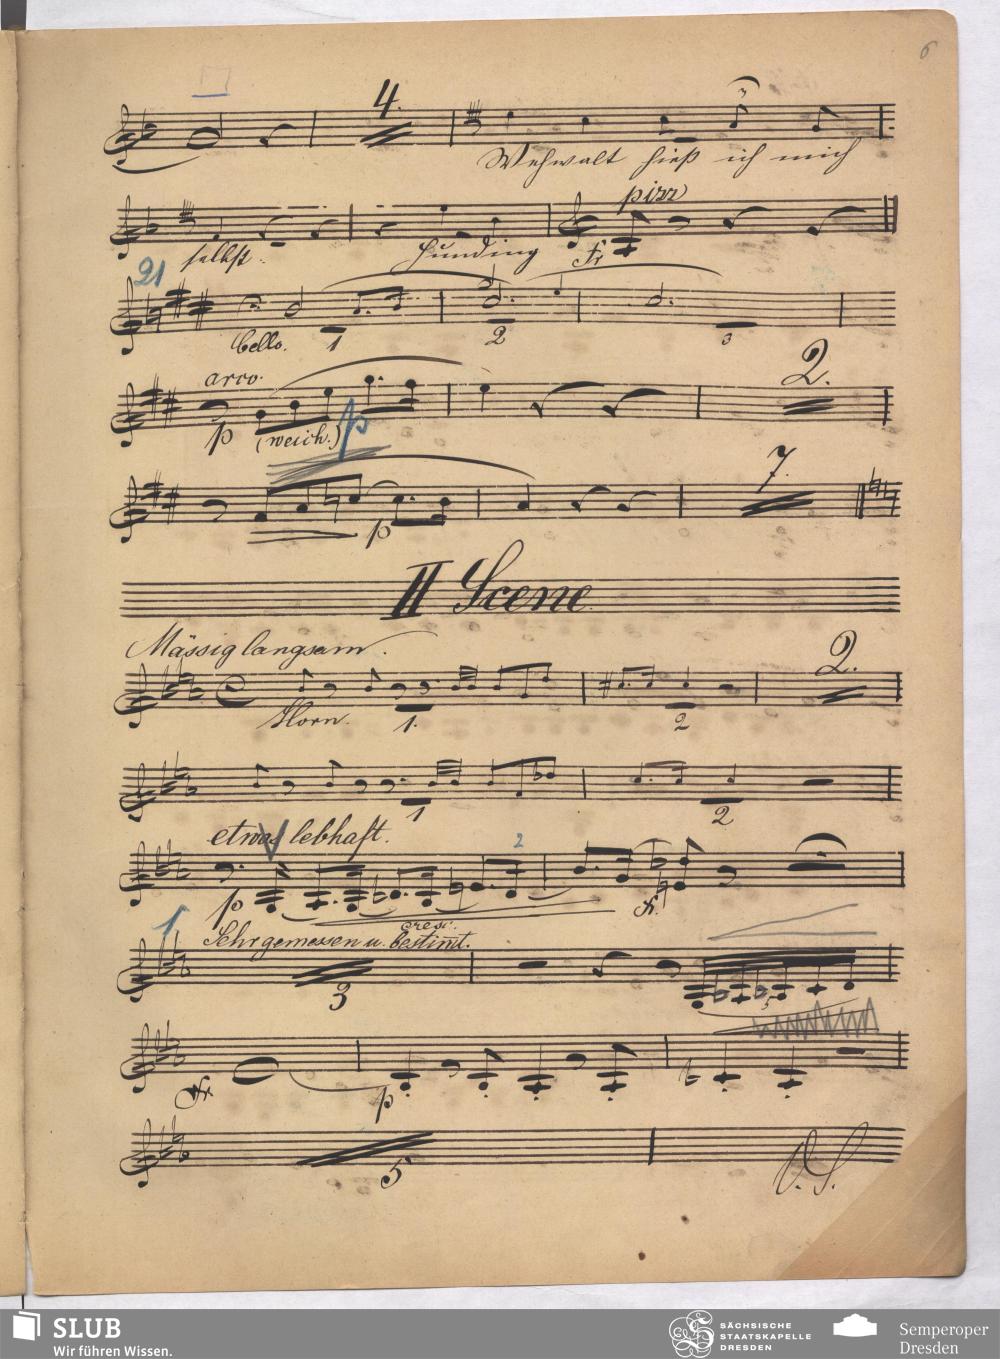 6
4.
Wehwalt hieß ich mich
pizz
selbst. Hunding
21
Cello. 1 2 3
arco. 2.
p (weich.) p
7.
p
II Scene
Mässig langsam. 2.
Horn. 1. 2
1 2
etwas lebhaft. 2
p cresc.
1 Sehr gemessen u. bestimt.
3 5
p
5 V.S.
SLUB
Wir führen Wissen.
SÄCHSISCHE
STAATSKAPELLE
DRESDEN
Semperoper
Dresden